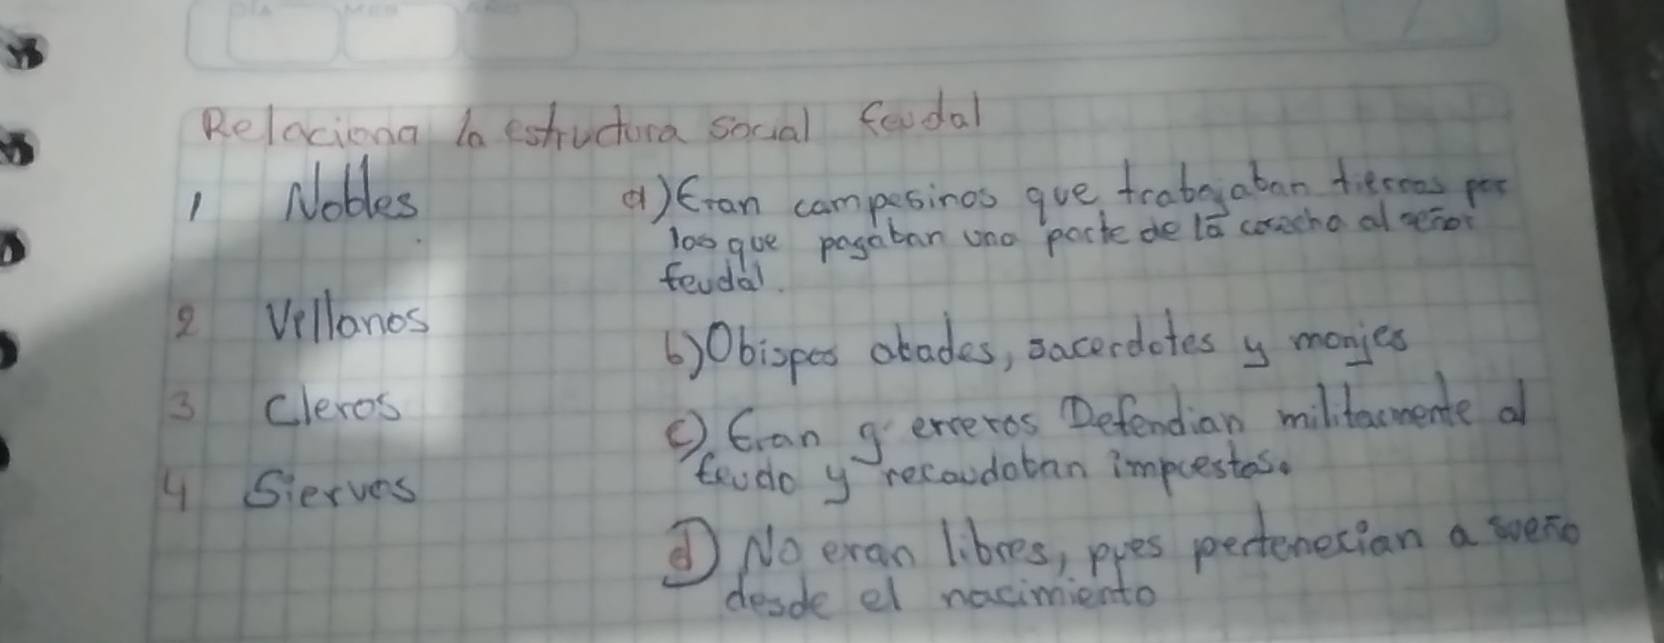 Relaciona la estructura social feudal
1 Nobles
a) Eran campesinos que trabajaban tierras por
los que pagaban una parte de la cosecha al señor
feudal.
2 Villanos
b) Obispos abades, sacerdotes y monjes
3 Cleros
c) Eran g erreros Defendian militarmente al
feudo y recaudaban impuestos.
4 Siervos
d) No eran libres, pues pertenecian a sueño
desde el nacimiento